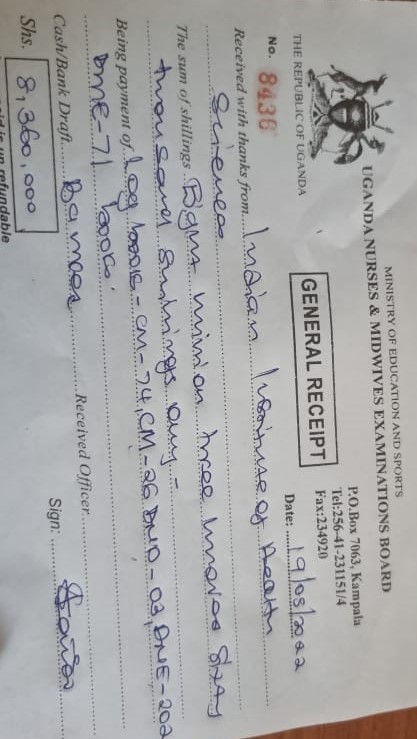 MINISTRY OF EDUCATION AND SPORTS
UGANDA NURSES & MIDWIVES EXAMINATIONS BOARD
THE REPUBLIC OF UGANDA
P.O.Box 7063, Kampala
Tel:256-41-231151/4
Fax:234920
GENERAL RECEIPT
No. 8436
Date: 19/05/2022
Received with thanks from Indian Institute of Health
Sciences
The sum of shillings Eight million three hundred sixty
thousand shillings only =
Being payment of Log books - CM-74, CM-26 DND-03, DNE-202
DME-71 books.
Cash/Bank Draft Received Officer
Shs. 8,360,000 Sign:
refundable